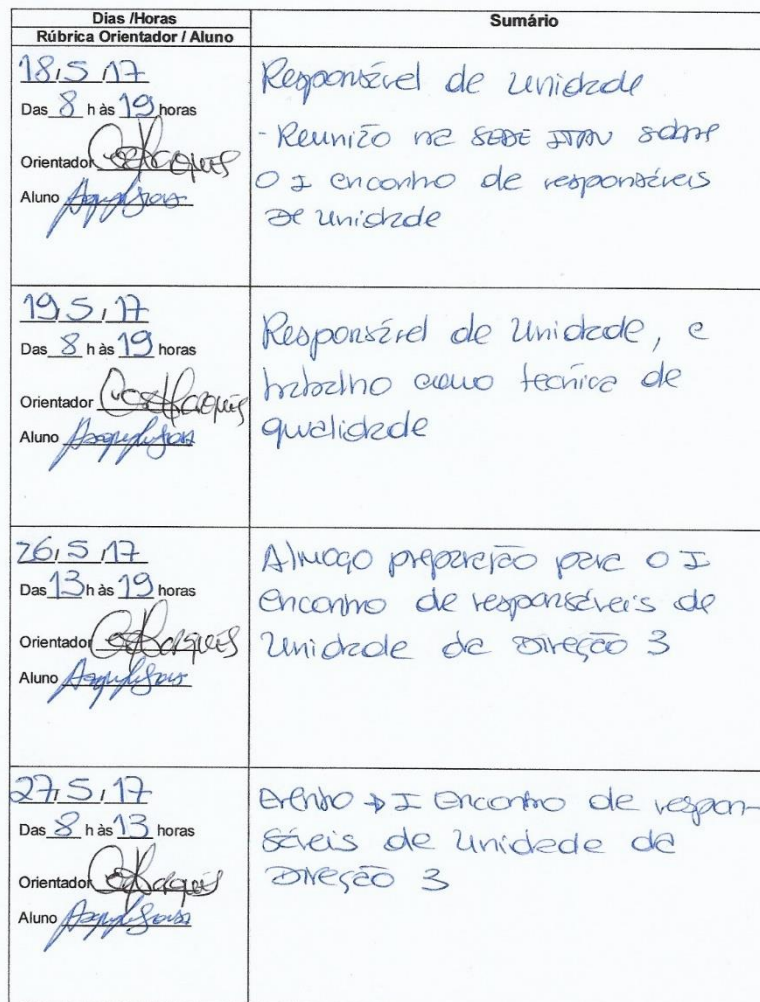 Dias /Horas
Rúbrica Orientador / Aluno
Sumário
18/5/17
Das 8 h às 19 horas
Orientador
Aluno
Responsável de Unidade
- Reunião na SEDE ITAU sobre
O I encontro de responsáveis
de Unidade
19/5/17
Das 8 h às 19 horas
Orientador
Aluno
Responsável de Unidade, e
trabalho como tecnica de
qualidade
26/5/17
Das 13 h às 19 horas
Orientador
Aluno
Almoço preparação para o I
encontro de responsáveis de
Unidade da Direção 3
27/5/17
Das 8 h às 13 horas
Orientador
Aluno
Evento → I Encontro de respon-
sáveis de Unidade da
Direção 3